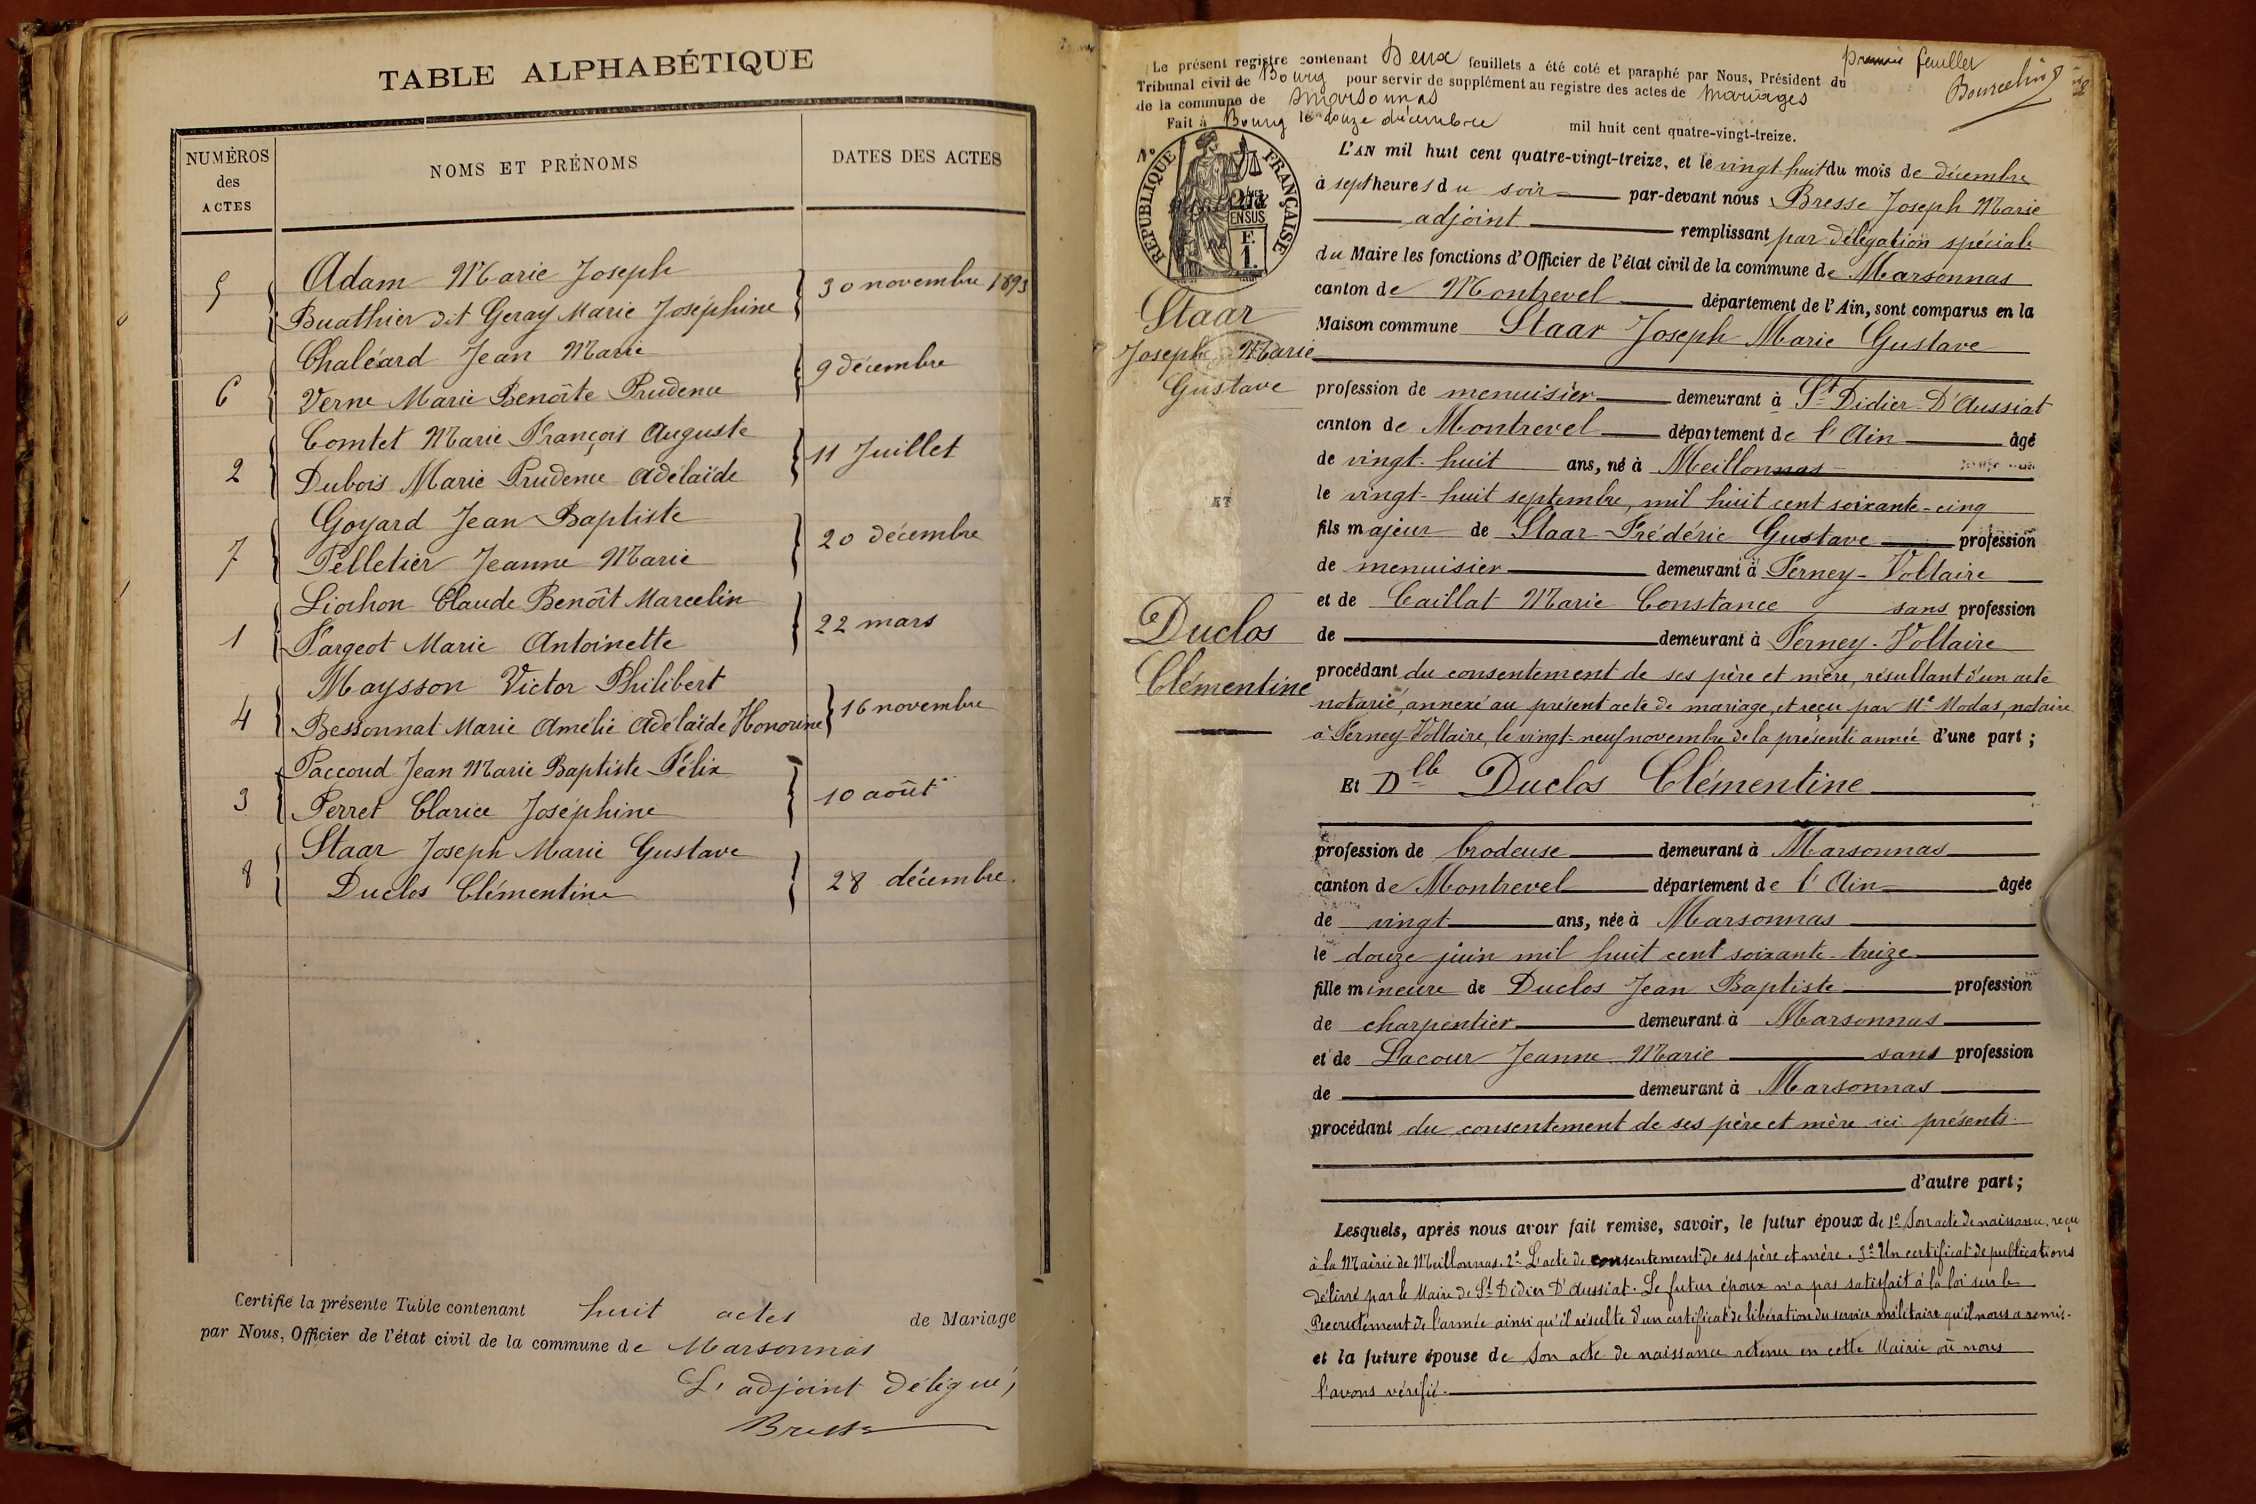 TABLE ALPHABÉTIQUE
NUMÉROS des ACTES
NOMS ET PRÉNOMS
DATES DES ACTES
5
Adam Marie Joseph
Buathier dit Geray Marie Joséphine
30 novembre 1893
6
Chaléard Jean Marie
Verne Marie Benoîte Prudence
9 décembre
2
Comtet Marie François Auguste
Dubois Marie Prudence Adélaïde
11 Juillet
7
Goyard Jean Baptiste
Pelletier Jeanne Marie
20 décembre
1
Liochon Claude Benoît Marcelin
Fargeot Marie Antoinette
22 mars
4
Maysson Victor Philibert
Bessonnat Marie Amélie Adélaïde Honorine
16 novembre
3
Paccoud Jean Marie Baptiste Félix
Perret Clarice Joséphine
10 août
8
Staar Joseph Marie Gustave
Duclos Clémentine
28 décembre.
Certifié la présente Table contenant huit actes de Mariage
par Nous, Officier de l'état civil de la commune de Marsonnas
L'adjoint Délégué,
Bresse
Le présent registre contenant Deux feuillets a été coté et paraphé par Nous, Président du
Tribunal civil de Bourg pour servir de supplément au registre des actes de Mariages
de la commune de Marsonnas
Fait à Bourg le douze décembre mil huit cent quatre-vingt-treize.
premier feuillet
N° 8
RÉPUBLIQUE FRANÇAISE
EN SUS
F.
1.
L'AN mil huit cent quatre-vingt-treize, et le vingt huit du mois de décembre
à sept heures du soir par-devant nous Bresse Joseph Marie
adjoint remplissant par délégation spéciale
du Maire les fonctions d'Officier de l'état civil de la commune de Marsonnas
canton de Montrevel département de l'Ain, sont comparus en la
Maison commune Staar Joseph Marie Gustave
Staar
Joseph Marie
Gustave
profession de menuisier demeurant à St Didier D'Aussiat
canton de Montrevel département de l'Ain âgé
de vingt-huit ans, né à Meillonnas
ET
le vingt-huit septembre, mil huit cent soixante-cinq
fils majeur de Staar Frédéric Gustave profession
de menuisier demeurant à Ferney-Voltaire
et de Caillat Marie Constance sans profession
Duclos
Clémentine
de demeurant à Ferney-Voltaire
procédant du consentement de ses père et mère, résultant d'un acte
notarié, annexé au présent acte de mariage, et reçu par Me Modas, notaire
à Ferney-Voltaire, le vingt-neuf novembre de la présente année d'une part ;
Et Dlle Duclos Clémentine
profession de brodeuse demeurant à Marsonnas
canton de Montrevel département de l'Ain âgée
de vingt ans, née à Marsonnas
le douze juin mil huit cent soixante-treize
fille mineure de Duclos Jean Baptiste profession
de charpentier demeurant à Marsonnas
et de Lacour Jeanne Marie sans profession
de demeurant à Marsonnas
procédant du consentement de ses père et mère ici présents
d'autre part ;
Lesquels, après nous avoir fait remise, savoir, le futur époux de 1° Son acte de naissance, reçu
à la Mairie de Meillonnas. 2° L'acte de consentement de ses père et mère. 3° Un certificat de publications
délivré par le Maire de St Didier D'Aussiat. Le futur époux n'a pas satisfait à la loi sur le
Recrutement de l'armée ainsi qu'il résulte d'un certificat de libération du service militaire qu'il nous a remis.
et la future épouse de Son acte de naissance retenu en cette Mairie où nous
l'avons vérifié.